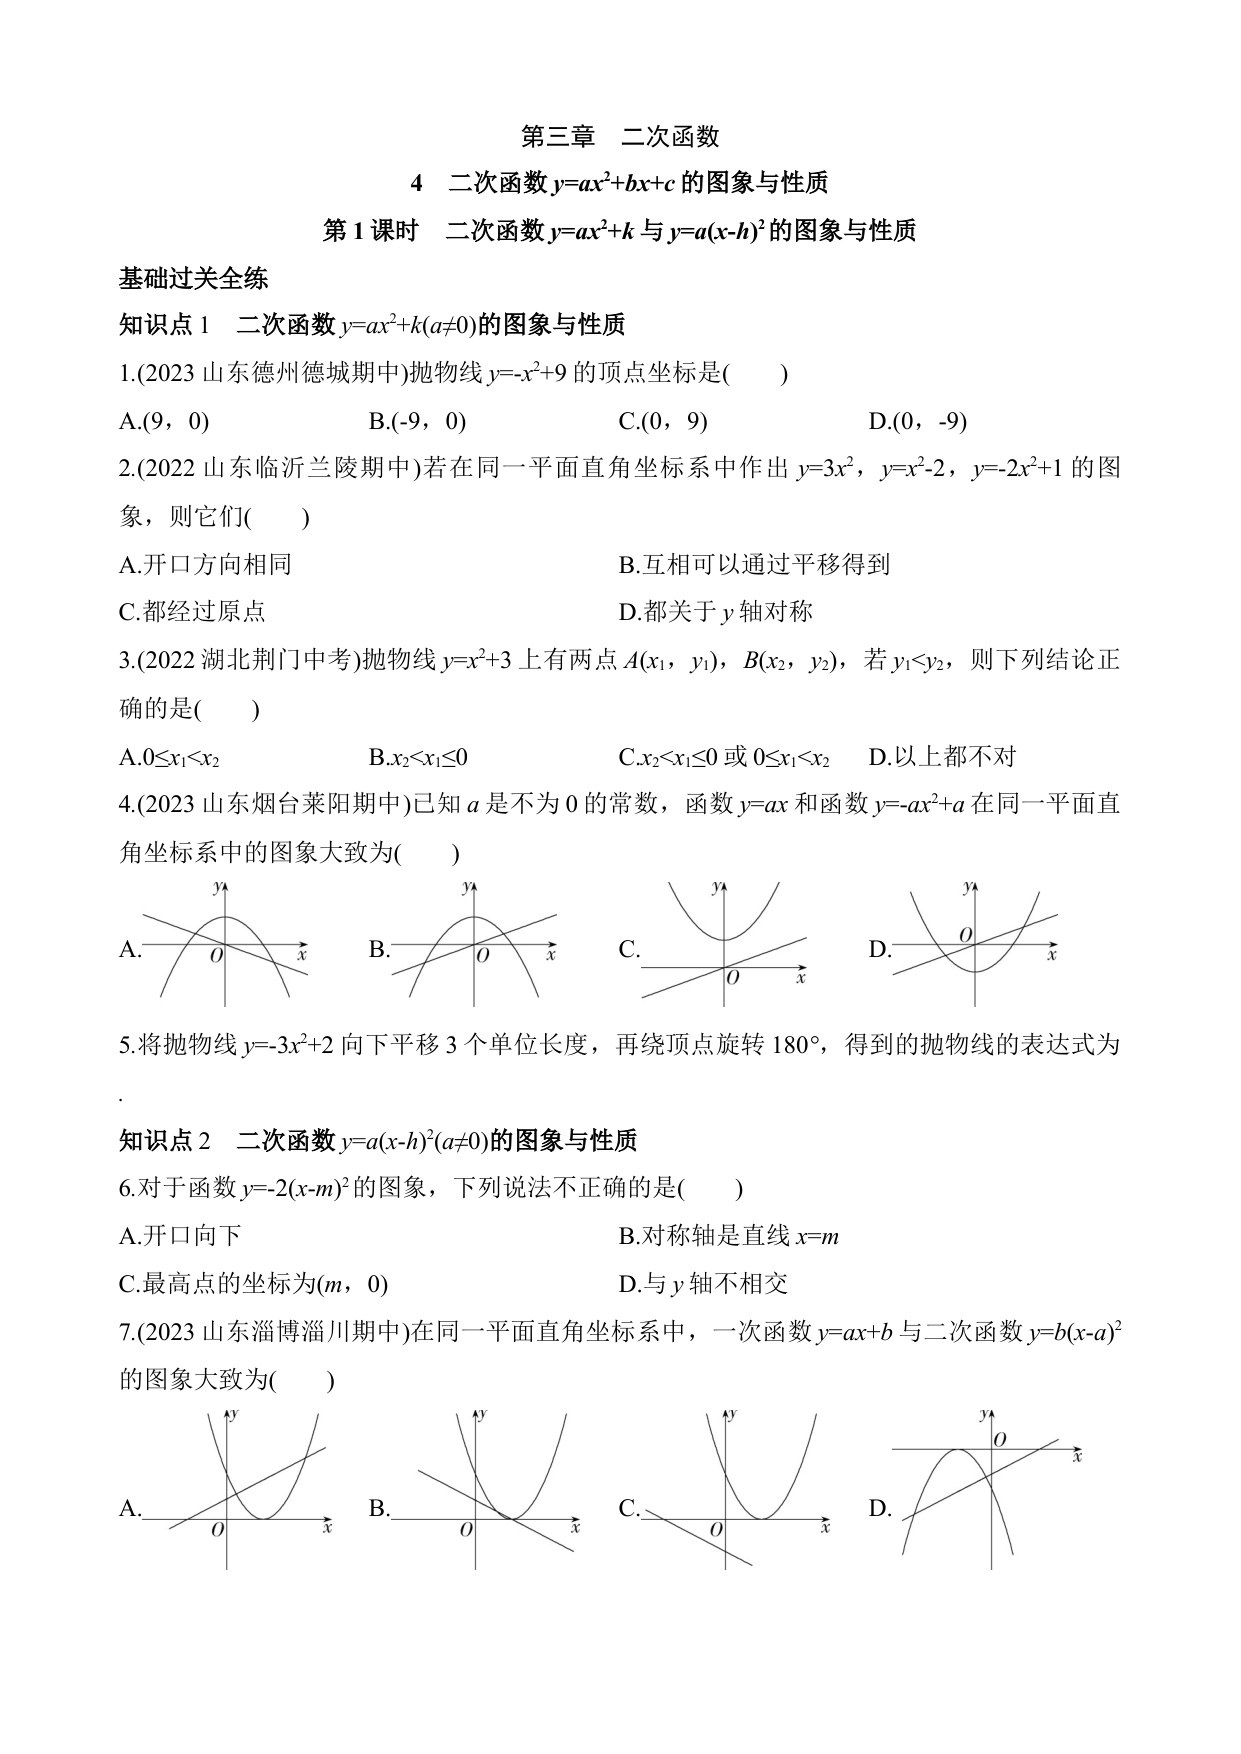 第三章　二次函数
4　二次函数 y=ax²+bx+c 的图象与性质
第 1 课时　二次函数 y=ax²+k 与 y=a(x-h)² 的图象与性质
基础过关全练
知识点 1　二次函数 y=ax²+k(a≠0)的图象与性质
1.(2023 山东德州德城期中)抛物线 y=-x²+9 的顶点坐标是(　　)
A.(9，0)　B.(-9，0)　C.(0，9)　D.(0，-9)
2.(2022 山东临沂兰陵期中)若在同一平面直角坐标系中作出 y=3x²，y=x²-2，y=-2x²+1 的图
象，则它们(　　)
A.开口方向相同　B.互相可以通过平移得到
C.都经过原点　D.都关于 y 轴对称
3.(2022 湖北荆门中考)抛物线 y=x²+3 上有两点 A(x₁，y₁)，B(x₂，y₂)，若 y₁<y₂，则下列结论正
确的是(　　)
A.0≤x₁<x₂　B.x₂<x₁≤0　C.x₂<x₁≤0 或 0≤x₁<x₂　D.以上都不对
4.(2023 山东烟台莱阳期中)已知 a 是不为 0 的常数，函数 y=ax 和函数 y=-ax²+a 在同一平面直
角坐标系中的图象大致为(　　)
A. y O x　B. y O x　C. y O x　D. y O x
5.将抛物线 y=-3x²+2 向下平移 3 个单位长度，再绕顶点旋转 180°，得到的抛物线的表达式为
.
知识点 2　二次函数 y=a(x-h)²(a≠0)的图象与性质
6.对于函数 y=-2(x-m)² 的图象，下列说法不正确的是(　　)
A.开口向下　B.对称轴是直线 x=m
C.最高点的坐标为(m，0)　D.与 y 轴不相交
7.(2023 山东淄博淄川期中)在同一平面直角坐标系中，一次函数 y=ax+b 与二次函数 y=b(x-a)²
的图象大致为(　　)
A. y O x　B. y O x　C. y O x　D. y O x